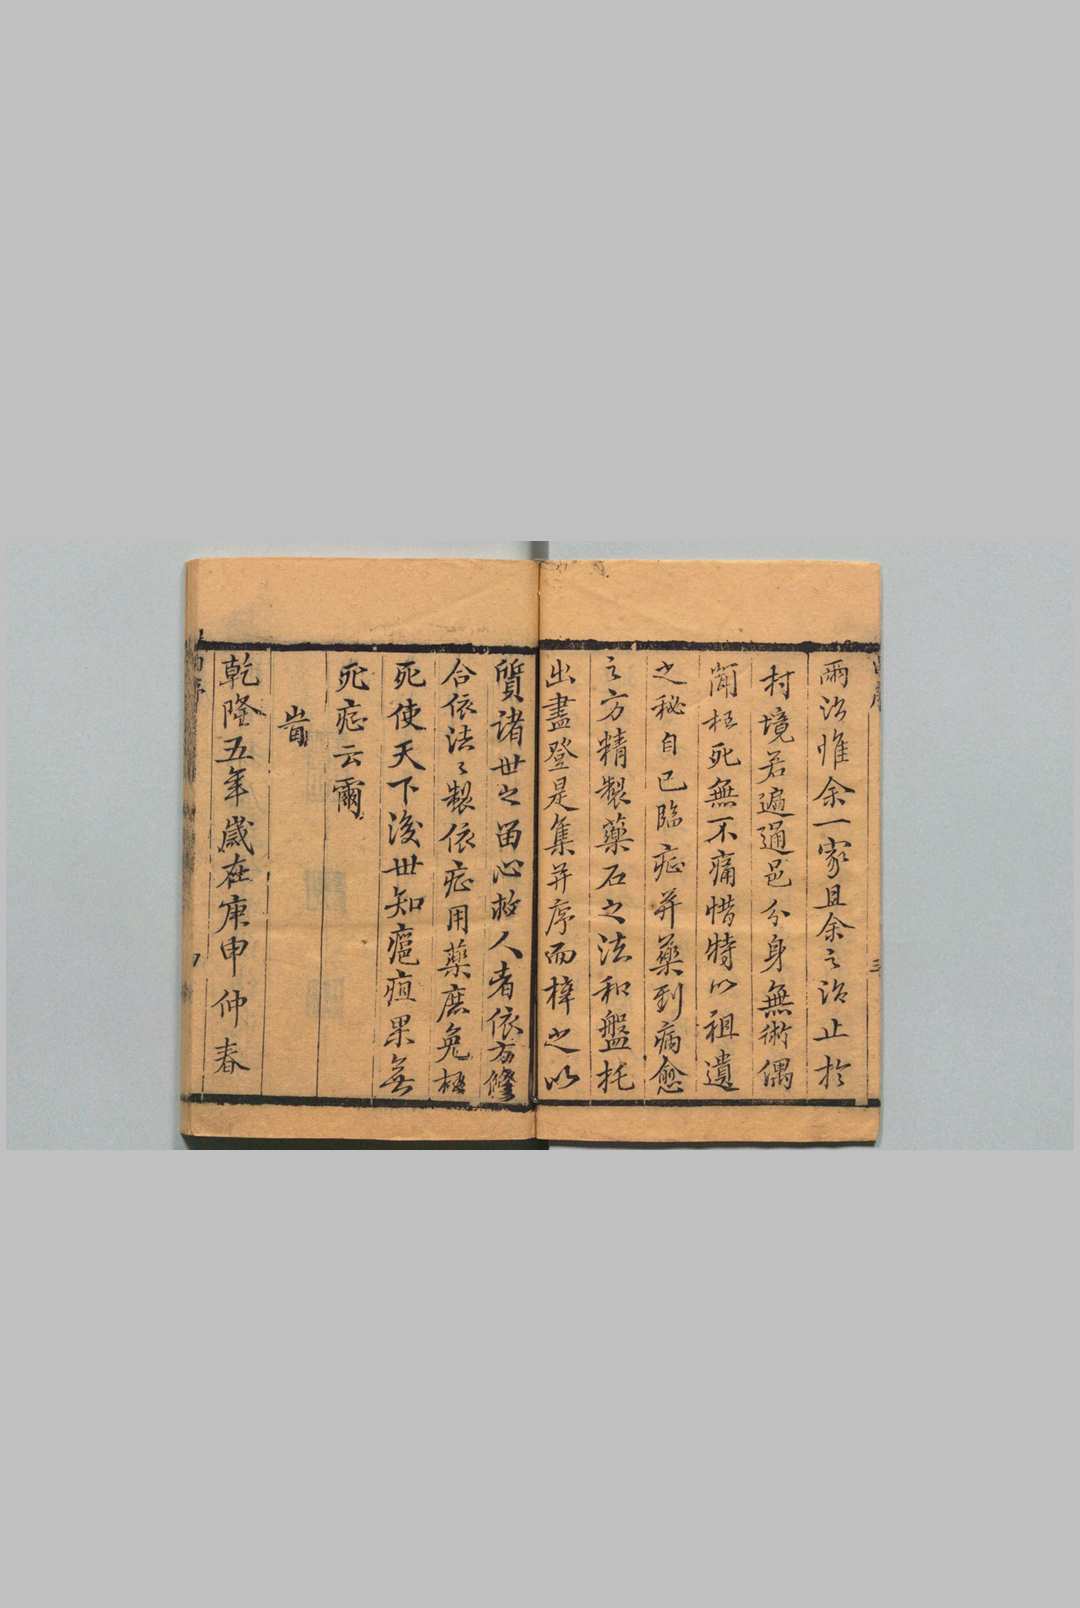 兩治惟余一家且余之治止扵
村境若遍通邑分身無術偶
聞枉死無不痛惜特以祖遺
之秘自己臨症并藥到病愈
之方精製藥石之法和盤托
出盡登是集并序而梓之以
質諸世之留心救人者依方修
合依法〻製依症用藥庶免枉
死使天下後世知瘟疽果無
死症云爾
旹
乾隆五年歲在庚申仲春